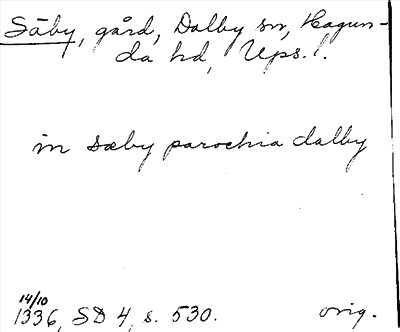 Säby, gård, Dalby sn, Hagun-
da hd, Ups. l.
in sæby parochia dalby
14/10
1336, SD 4, s. 530. orig.